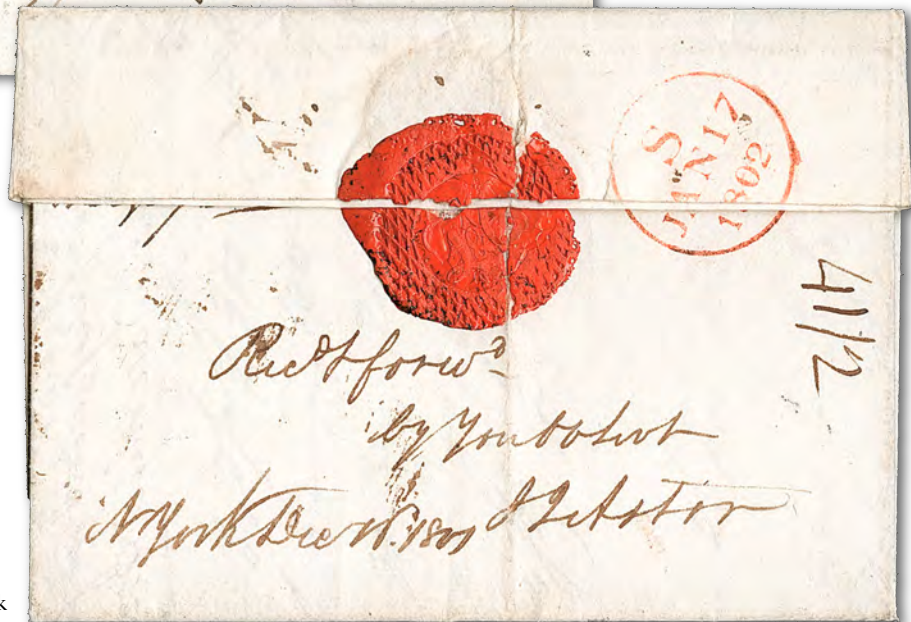 S
JAN 17
1802
41/2
Recd & forwd
by You
N York Dec 1801 J J Astor
x